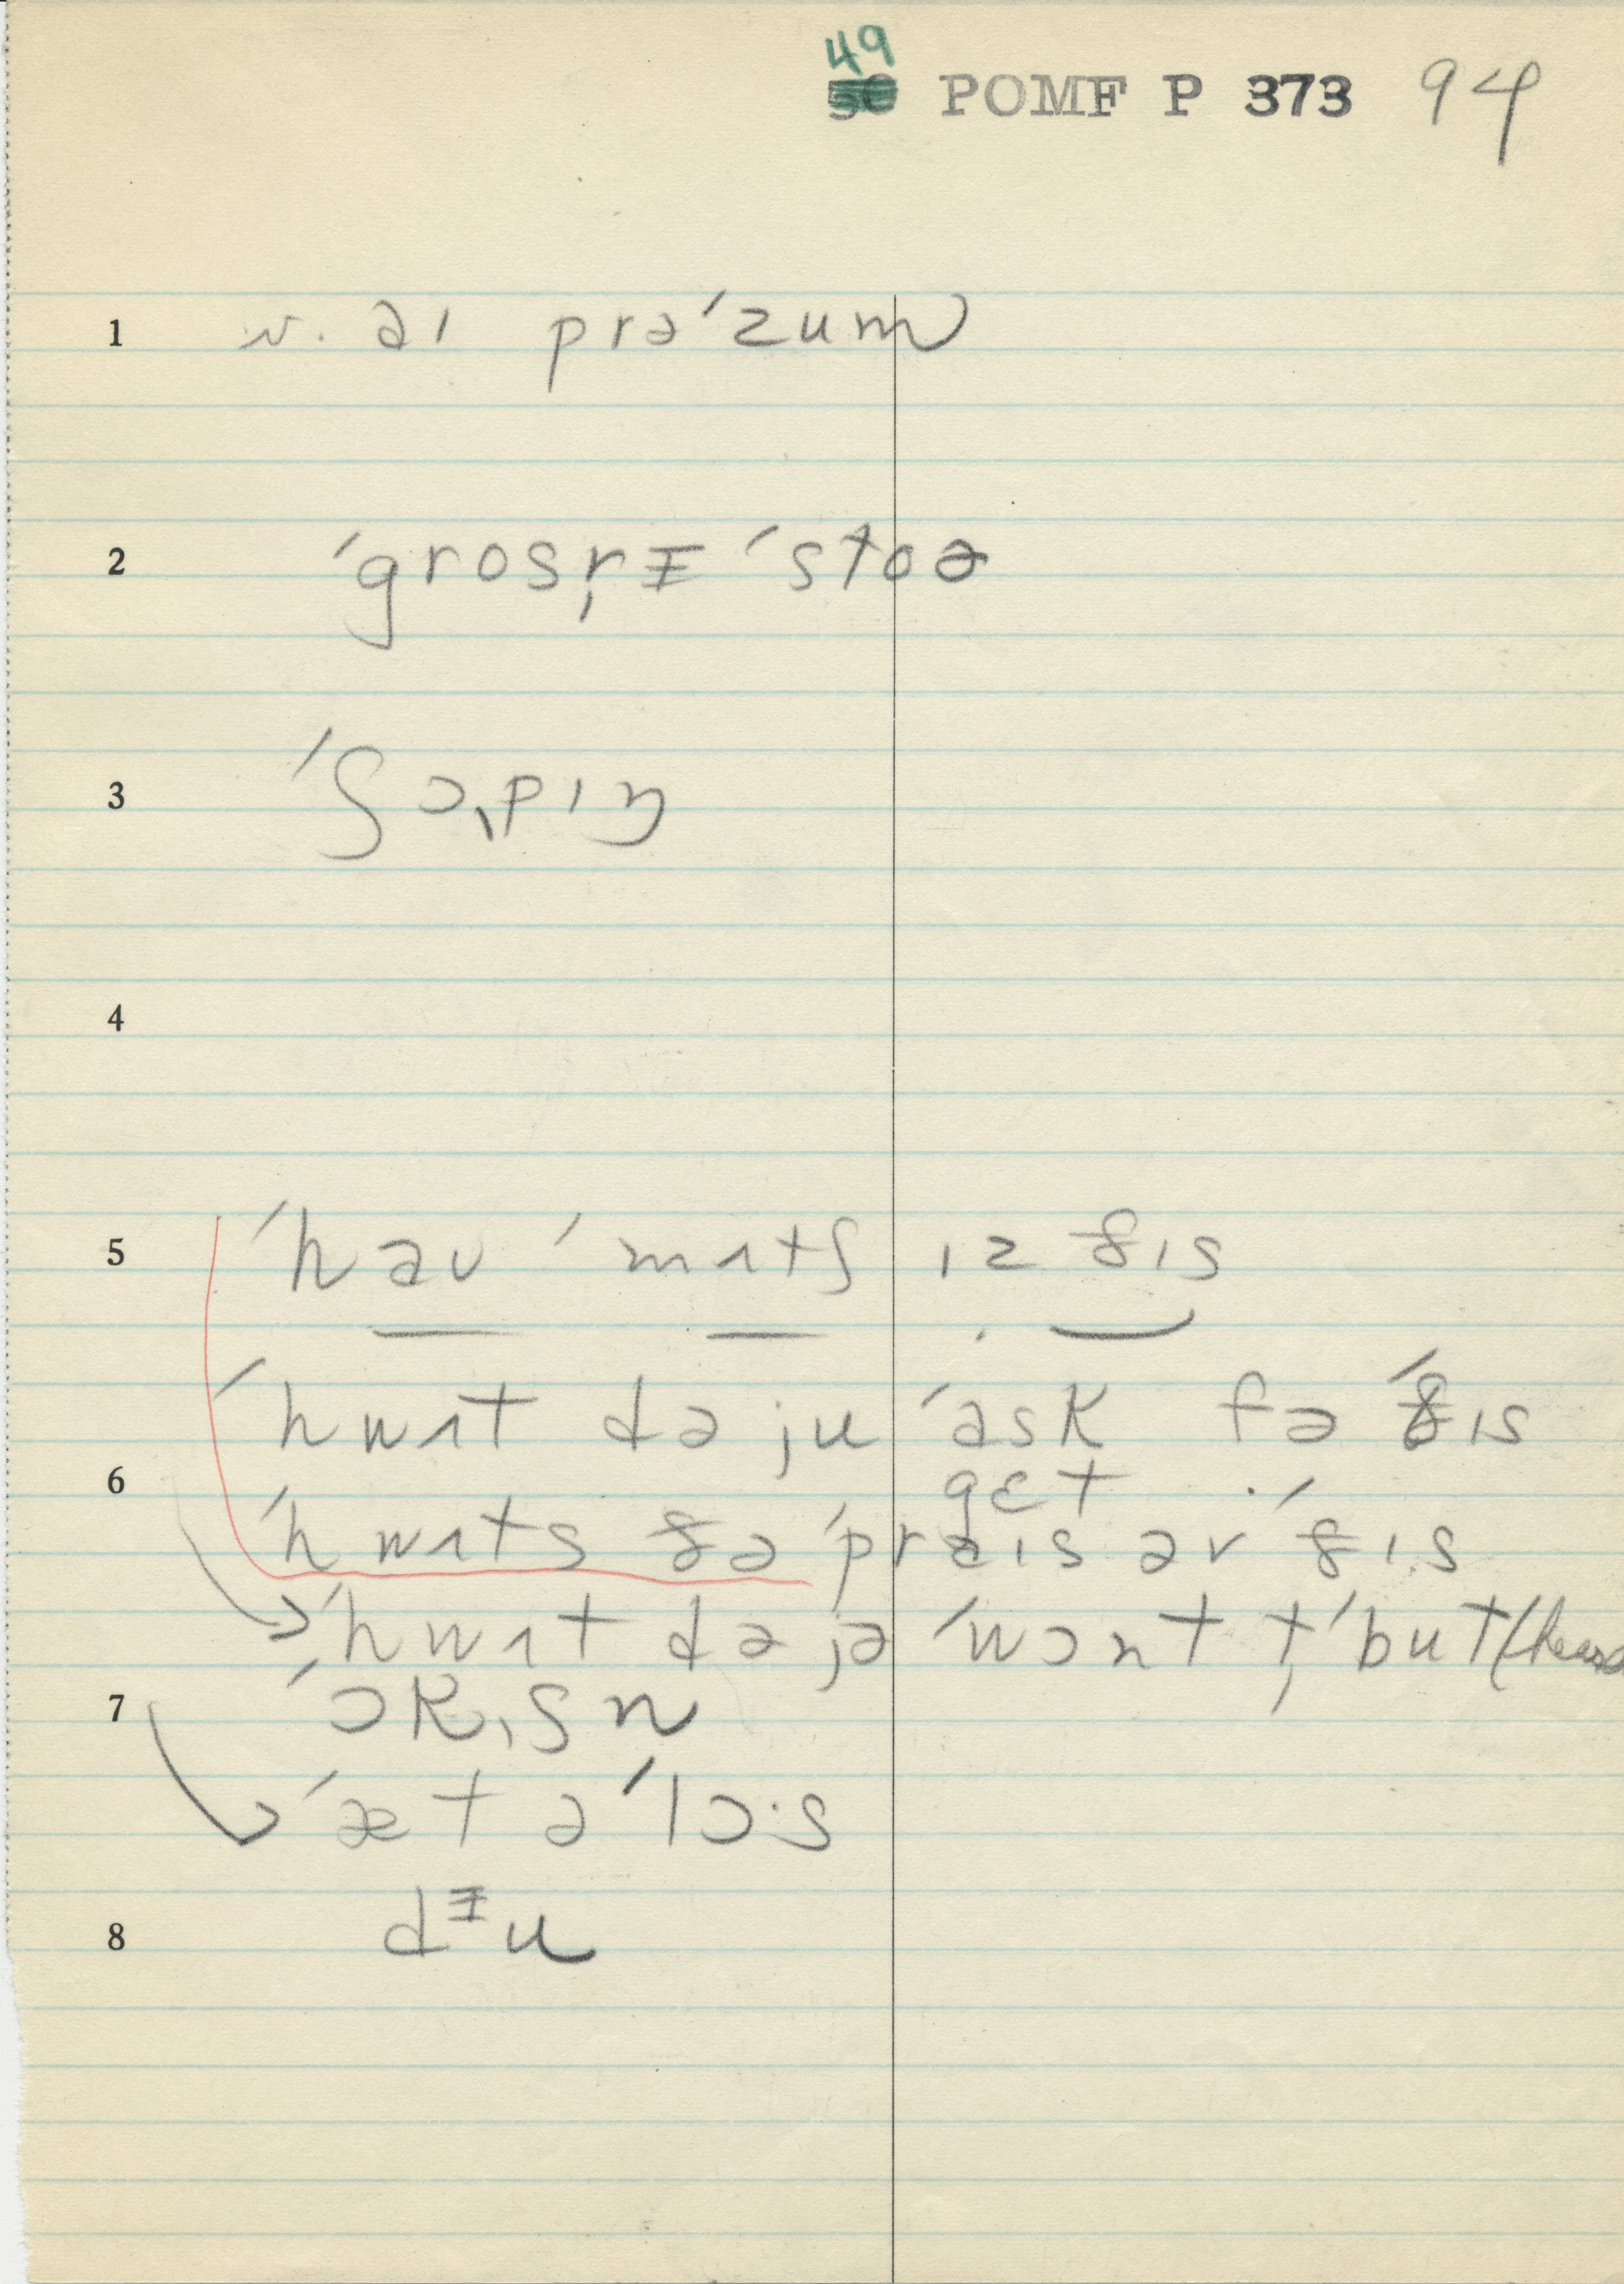 49
50 POMF P 373 94
1 v. aɪ prə'zum
2 'grosˌrɪ 'stoə
3 'ʃɔˌpɪŋ
4
5 'haʊ 'mʌtʃ ɪz ðɪs
'hwʌt də ju 'ask fə 'ðɪs
6 gɛt
'hwʌts ðə 'praɪs əv 'ðɪs
'hwʌt də jə 'wɔnt ˌt 'but
7 'ɔkˌʃn
'æt ə 'lɔ·s
8 dɪu